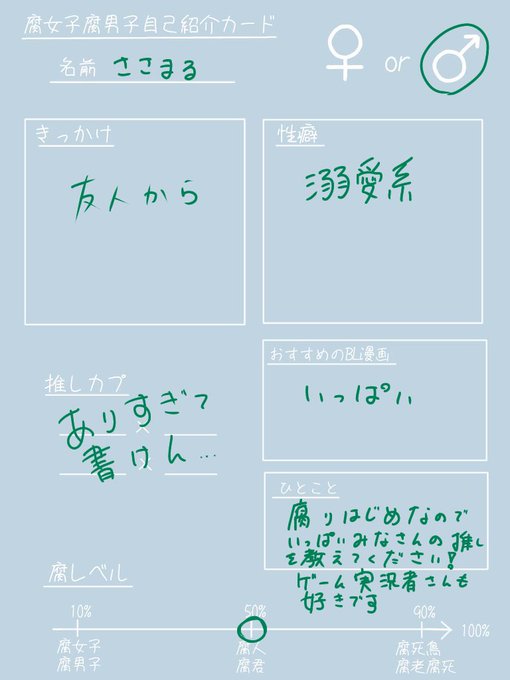 腐女子腐男子自己紹介カード
名前 ささまる
♀ or ♂
きっかけ
友人から
性癖
溺愛系
おすすめのBL漫画
いっぱい
推しカプ
ありすぎて
×
書けん…
×
ひとこと
腐りはじめなので
いっぱいみなさんの推し
を教えてください!
ゲーム実況者さんも
好きです
腐レベル
10% 50% 90% 100%
腐女子 腐人 腐死鳥
腐男子 腐君 腐老腐死